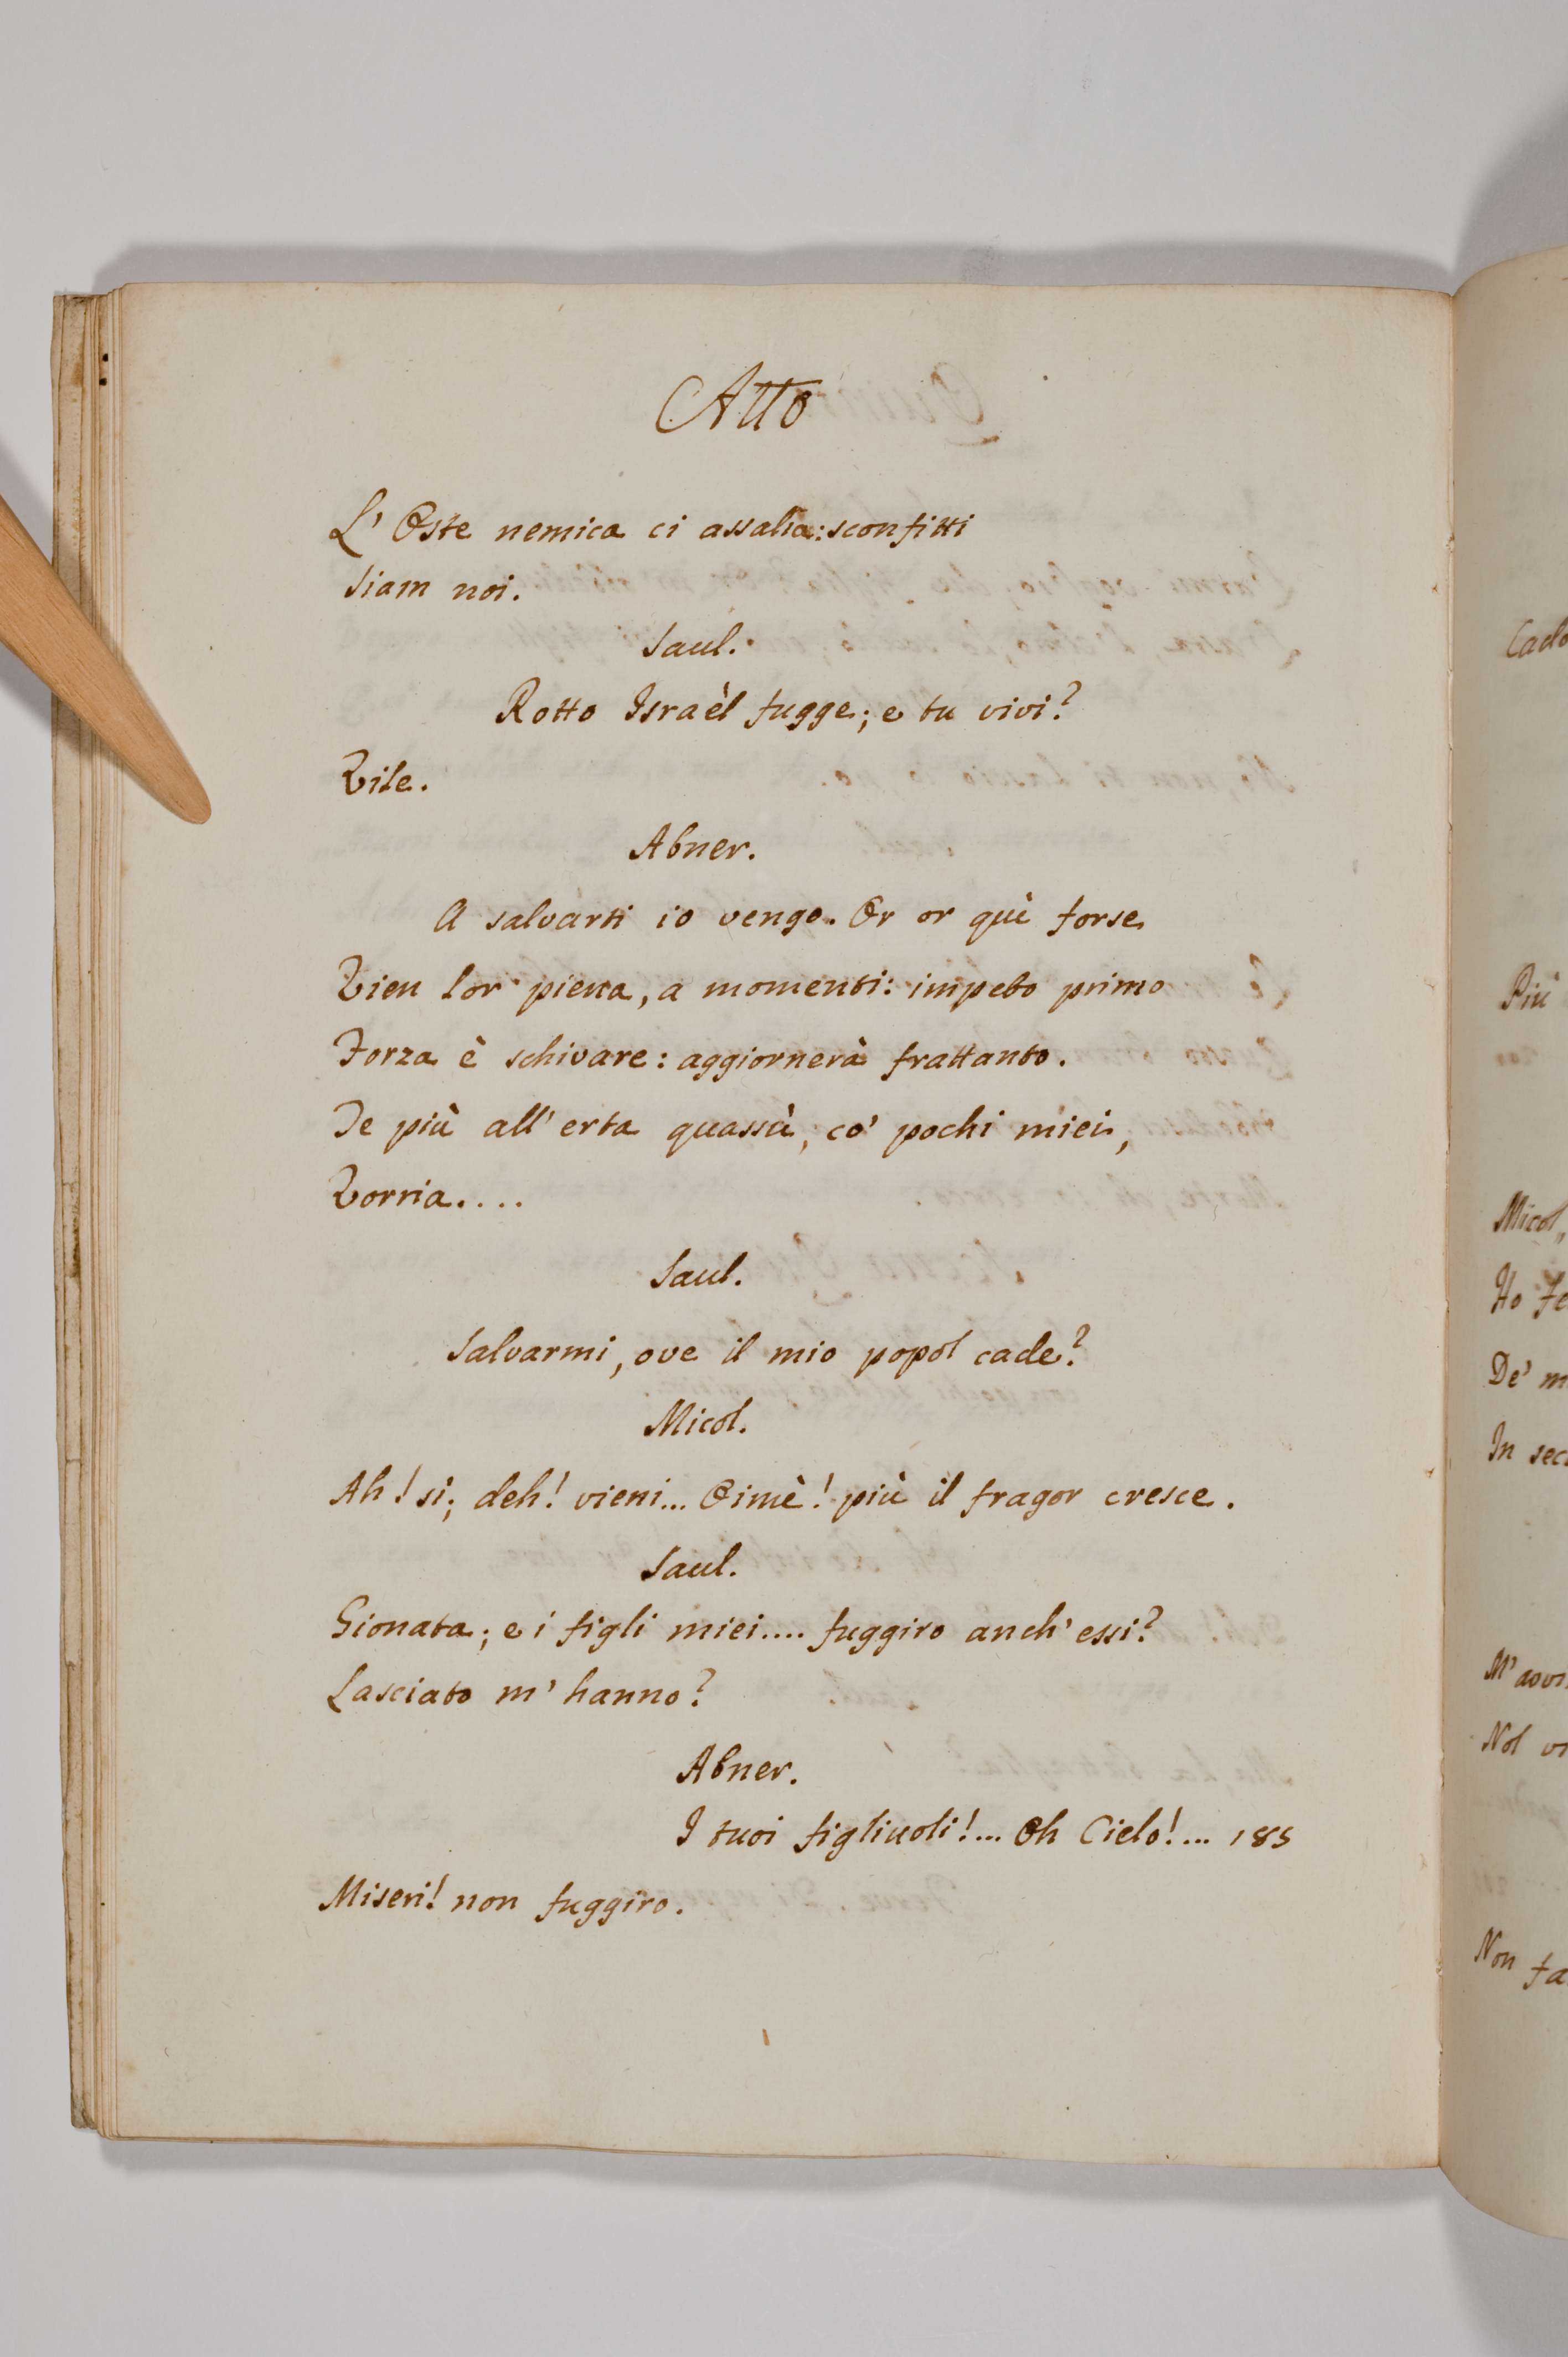 Atto
L' Oste nemica ci assalia: sconfitti
Siam noi.
Saul.
Rotto Israèl fugge; e tu vivi?
Vile.
Abner.
A salvarti io vengo. Or or quì forse
Vien lor piena, a momenti: impeto primo
Forza è schivare: aggiornerà frattanto.
Te più all' erta quassù, co' pochi miei,
Vorria....
Saul.
Salvarmi, ove il mio popol cade?
Micol.
Ah! si; deh! vieni... Oimè! più il fragor cresce.
Saul.
Gionata; e i figli miei.... fuggiro anch' essi?
Lasciato m' hanno?
Abner.
I tuoi figliuoli!... Oh Cielo!... 185
Miseri! non fuggiro.
Più
Micol,
Ho
De'
In
Nol
Non